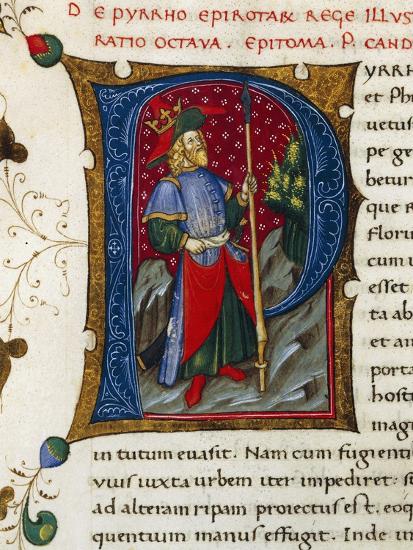 DE PYRRHO EPIROTAꝜ REGE ILLVS
RATIO OCTAVA. EPITOMA. P. CAND
PYRRH
et Ph
uetus
pe ge
betur
que R
Floru
cum u
esset
ta ab
et an
porta
hosti
magi
in tutum euasit. Nam cum fugienti
uiis iuxta urbem iter impediret: st
ad alteram ripam proiectus est. eoq
quentium manus effugit. Inde in